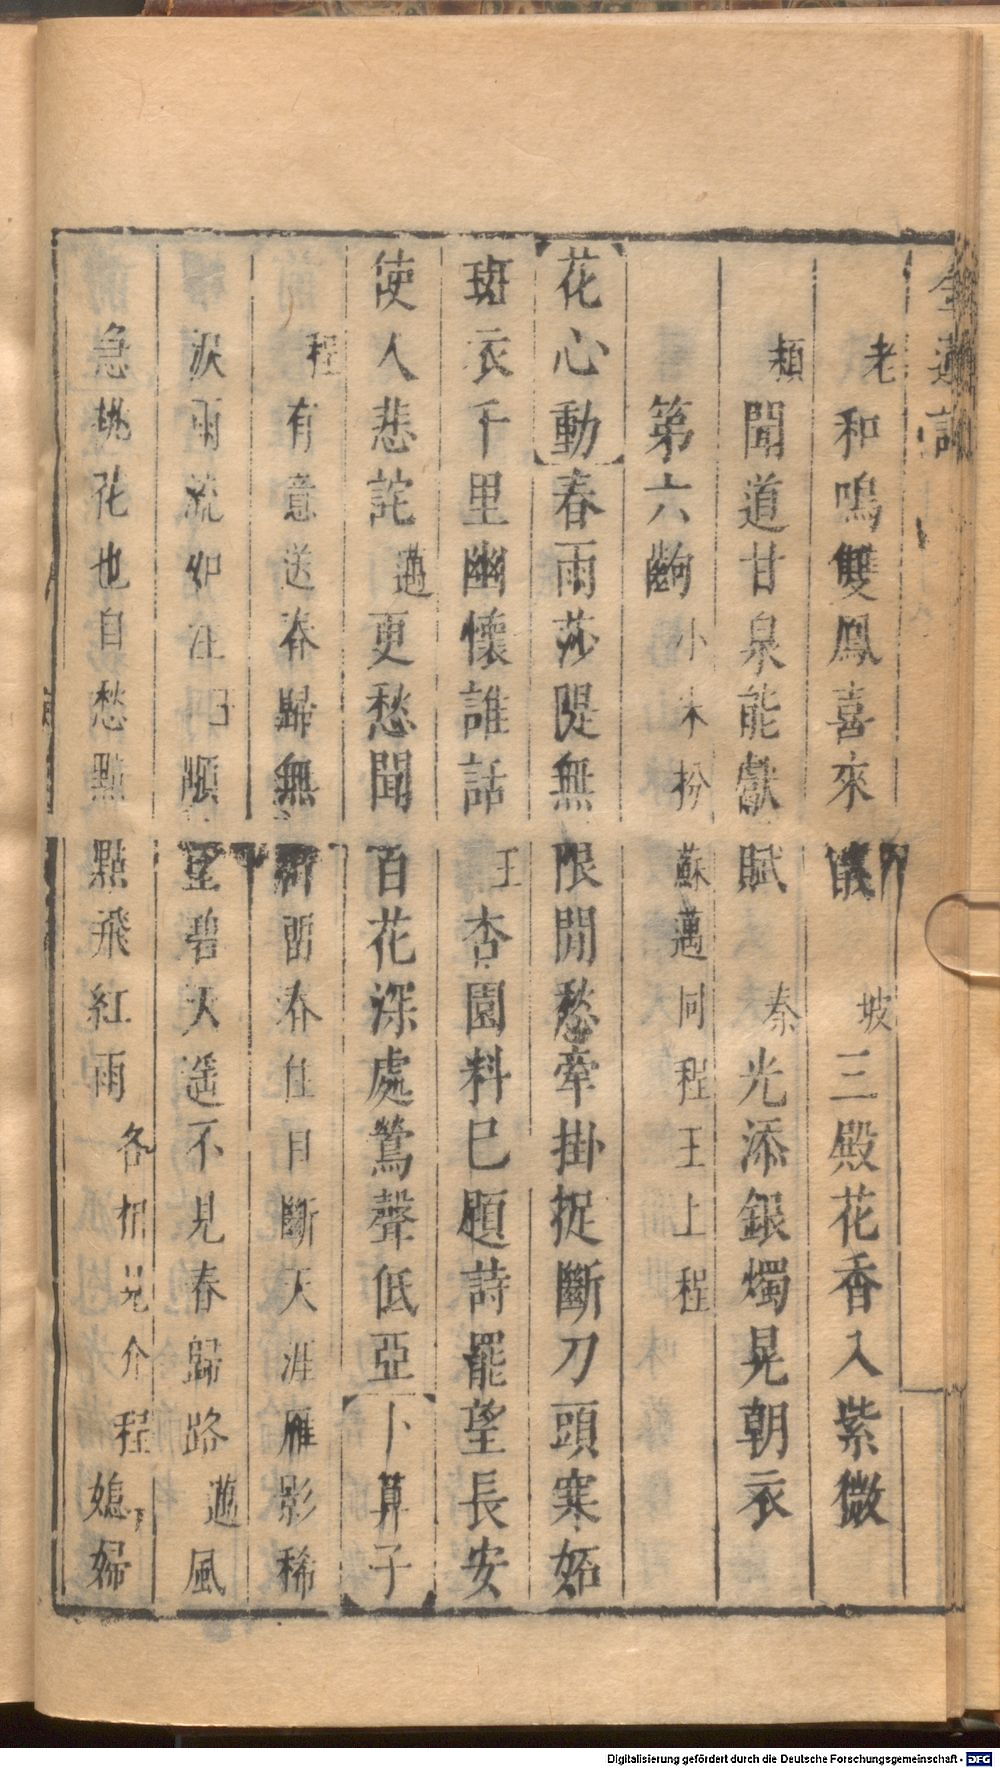 金蓮記
老和鳴雙鳳喜來儀 坡三殿花香入紫微
頛聞道甘泉能獻賦 秦光添銀燭晃朝衣
第六齣 小末扮蘇邁同程王上程
花心動春雨莎隄無限閒愁牽掛捉斷刀頭寒妬
斑衣千里幽懷誰話 王杏園料已題詩罷望長安
使人悲詫 邁更愁聞百花深處鶯聲低亞卜算子
程有意送春歸無計留春住目斷天涯雁影稀
淚雨流如注 王順望碧天遥不見春歸路 邁風
急桃花也自愁點點飛紅雨 各相見介 程媳婦
Digitalisierung gefördert durch die Deutsche Forschungsgemeinschaft - DFG